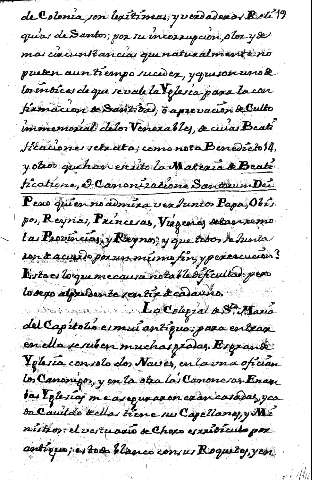 de Colonia, son lexitimas, y verdaderas Reli- 19
quias de Santo; por su incorrupcion, olor, y de
mas circunstancias que naturalmente no
pueden a un tiempo suceder, y que son uno de
los indices de que se vale la Yglesia para la con
firmacion de Santidad, ò aprovacion de Culto
immemorial de los Venerables, de cuias Beati
ficaciones se trata; como nota Benedicto 14,
y otros que han escrito la Materia de Beati
ficatione, et Canonizatione Sanctorum Dei.
Pero quien no admira ver Juntos Papa, Obis
pos, Reynas, Princesas, Virgenes de tan remo
tas Provincias, y Reynos; y que todos se Junta
sen de acuerdo por un mismo fin, y persecucion?
Esto es lo que me causa notable dificultad; pero
lo dexo al prudente sentir de cada uno.
La Colegial de Sta. Maria
del Capitolio es mui antigua; para entrar
en ella se suben muchas gradas. Es gran de
Yglesia con solo dos Naves, en la una ofician
los Canonigos, y en la otra las Canonesas. En
las Yglesias me aseguraron eran casadas, y ca
da Cavildo de ellas tiene sus Capellanes, y Mi
nistros: el vestuario de Choro es ridiculo por
antiguo; es todo blanco con sus Roquetes, y en